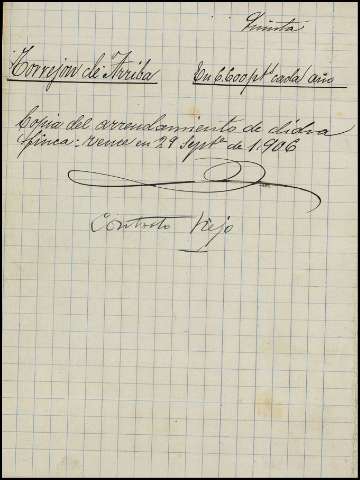 Quinta
Torrejon de Arriba En 6.600 pts cada año
Copia del arrendamiento de didra
finca: vence en 29 Septe de 1.906
Contrato Viejo